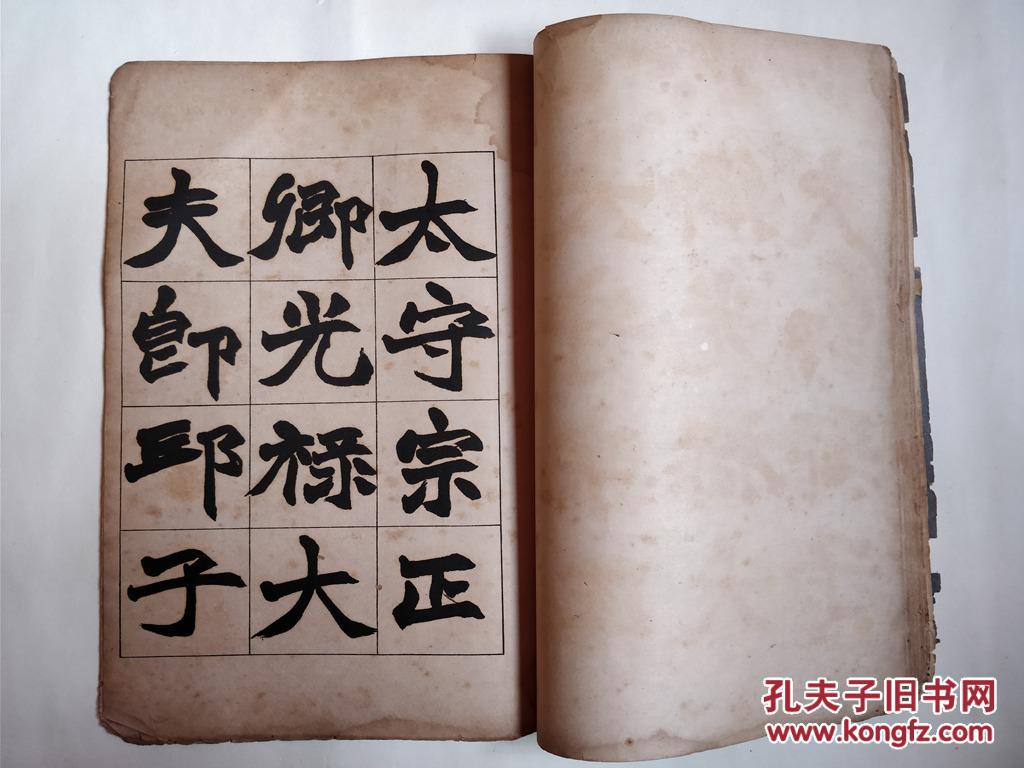 太守宗正
卿光禄大
夫即邱子
孔夫子旧书网
www.kongfz.com